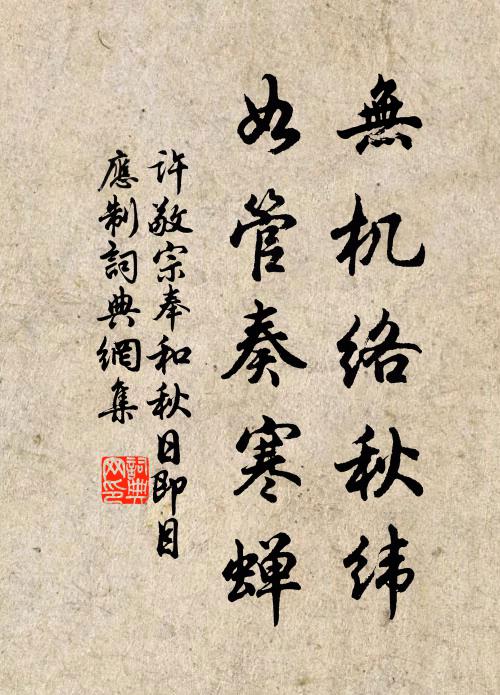 無机络秋纬
如管奏寒蝉
许敬宗奉和秋日即目
應制詞典網集
詞典
网印